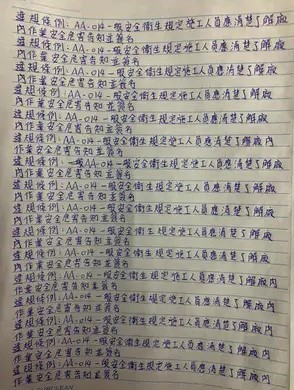 違規條例:AA-014一般安全衛生規定施工人員應清楚了解廠
內作業安全危害告知並簽名
違規條例:AA-014一般安全衛生規定施工人員應清楚了解廠
內作業安全危害告知並簽名
違規條例:AA-014一般安全衛生規定施工人員應清楚了解廠
內作業安全危害告知並簽名
違規條例:AA-014一般安全衛生規定施工人員應清楚了解廠
內作業安全危害告知並簽名
違規條例:AA-014一般安全衛生規定施工人員應清楚了解廠
內作業安全危害告知並簽名
違規條例:AA-014一般安全衛生規定施工人員應清楚了解廠內
作業安全危害告知並簽名
違規條例:一般AA-014一般安全衛生規定施工人員應清楚了解廠
內作業安全危害告知並簽名
違規條例:AA-014一般安全衛生規定施工人員應清楚了解廠
內作業安全危害告知並簽名
違規條例:AA-014一般安全衛生規定施工人員應清楚了解廠內
作業安全危害告知並簽名
違規條例:AA-014一般安全衛生規定施工人員應清楚了解廠內
作業安全危害告知並簽名
違規條例:AA-014一般安全衛生規定施工人員應清楚了解廠內
作業安全危害告知並簽名
違規條例:AA-014一般安全衛生規定施工人員應清楚了解廠內
作業安全危害告知並簽名
違規條例:AA-014一般安全衛生規定施工人員應清楚了解廠內
作業安全危害告知並簽名